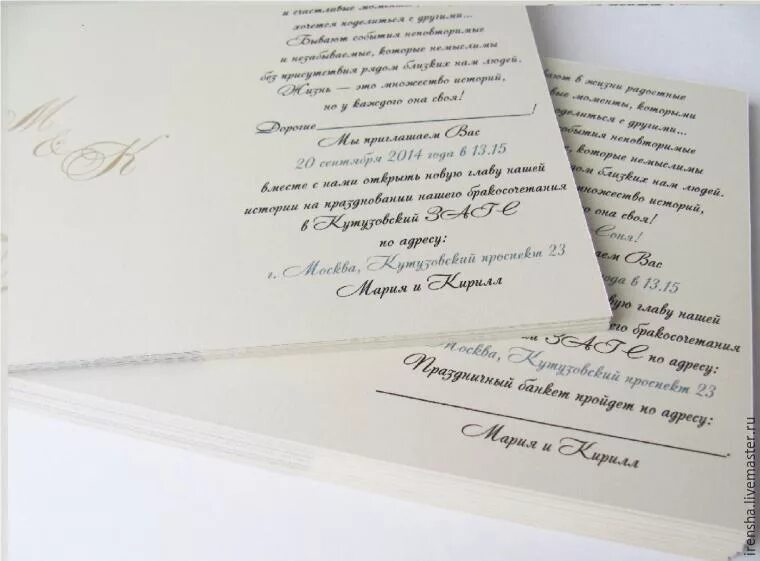 M
& K
и счастливые моменты, которыми
хочется поделиться с другими...
Бывают события неповторимые
и незабываемые, которые немыслимы
без присутствия рядом близких нам людей.
Жизнь — это множество историй,
но у каждого она своя!
Дорогие !
Мы приглашаем Вас
20 сентября 2014 года в 13.15
вместе с нами открыть новую главу нашей
истории на праздновании нашего бракосочетания
в Кутузовский ЗАГС
по адресу:
г. Москва, Кутузовский проспект 23
Мария и Кирилл
в жизни радостные
моменты, которыми
поделиться с другими...
события неповторимые
которые немыслимы
рядом близких нам людей.
множество историй,
она своя!
Соня!
Вас
в 13.15
главу нашей
бракосочетания
ЗАГС по адресу:
Москва, Кутузовский проспект 23
Праздничный банкет пройдет по адресу:
Мария и Кирилл
irensha.livemaster.ru